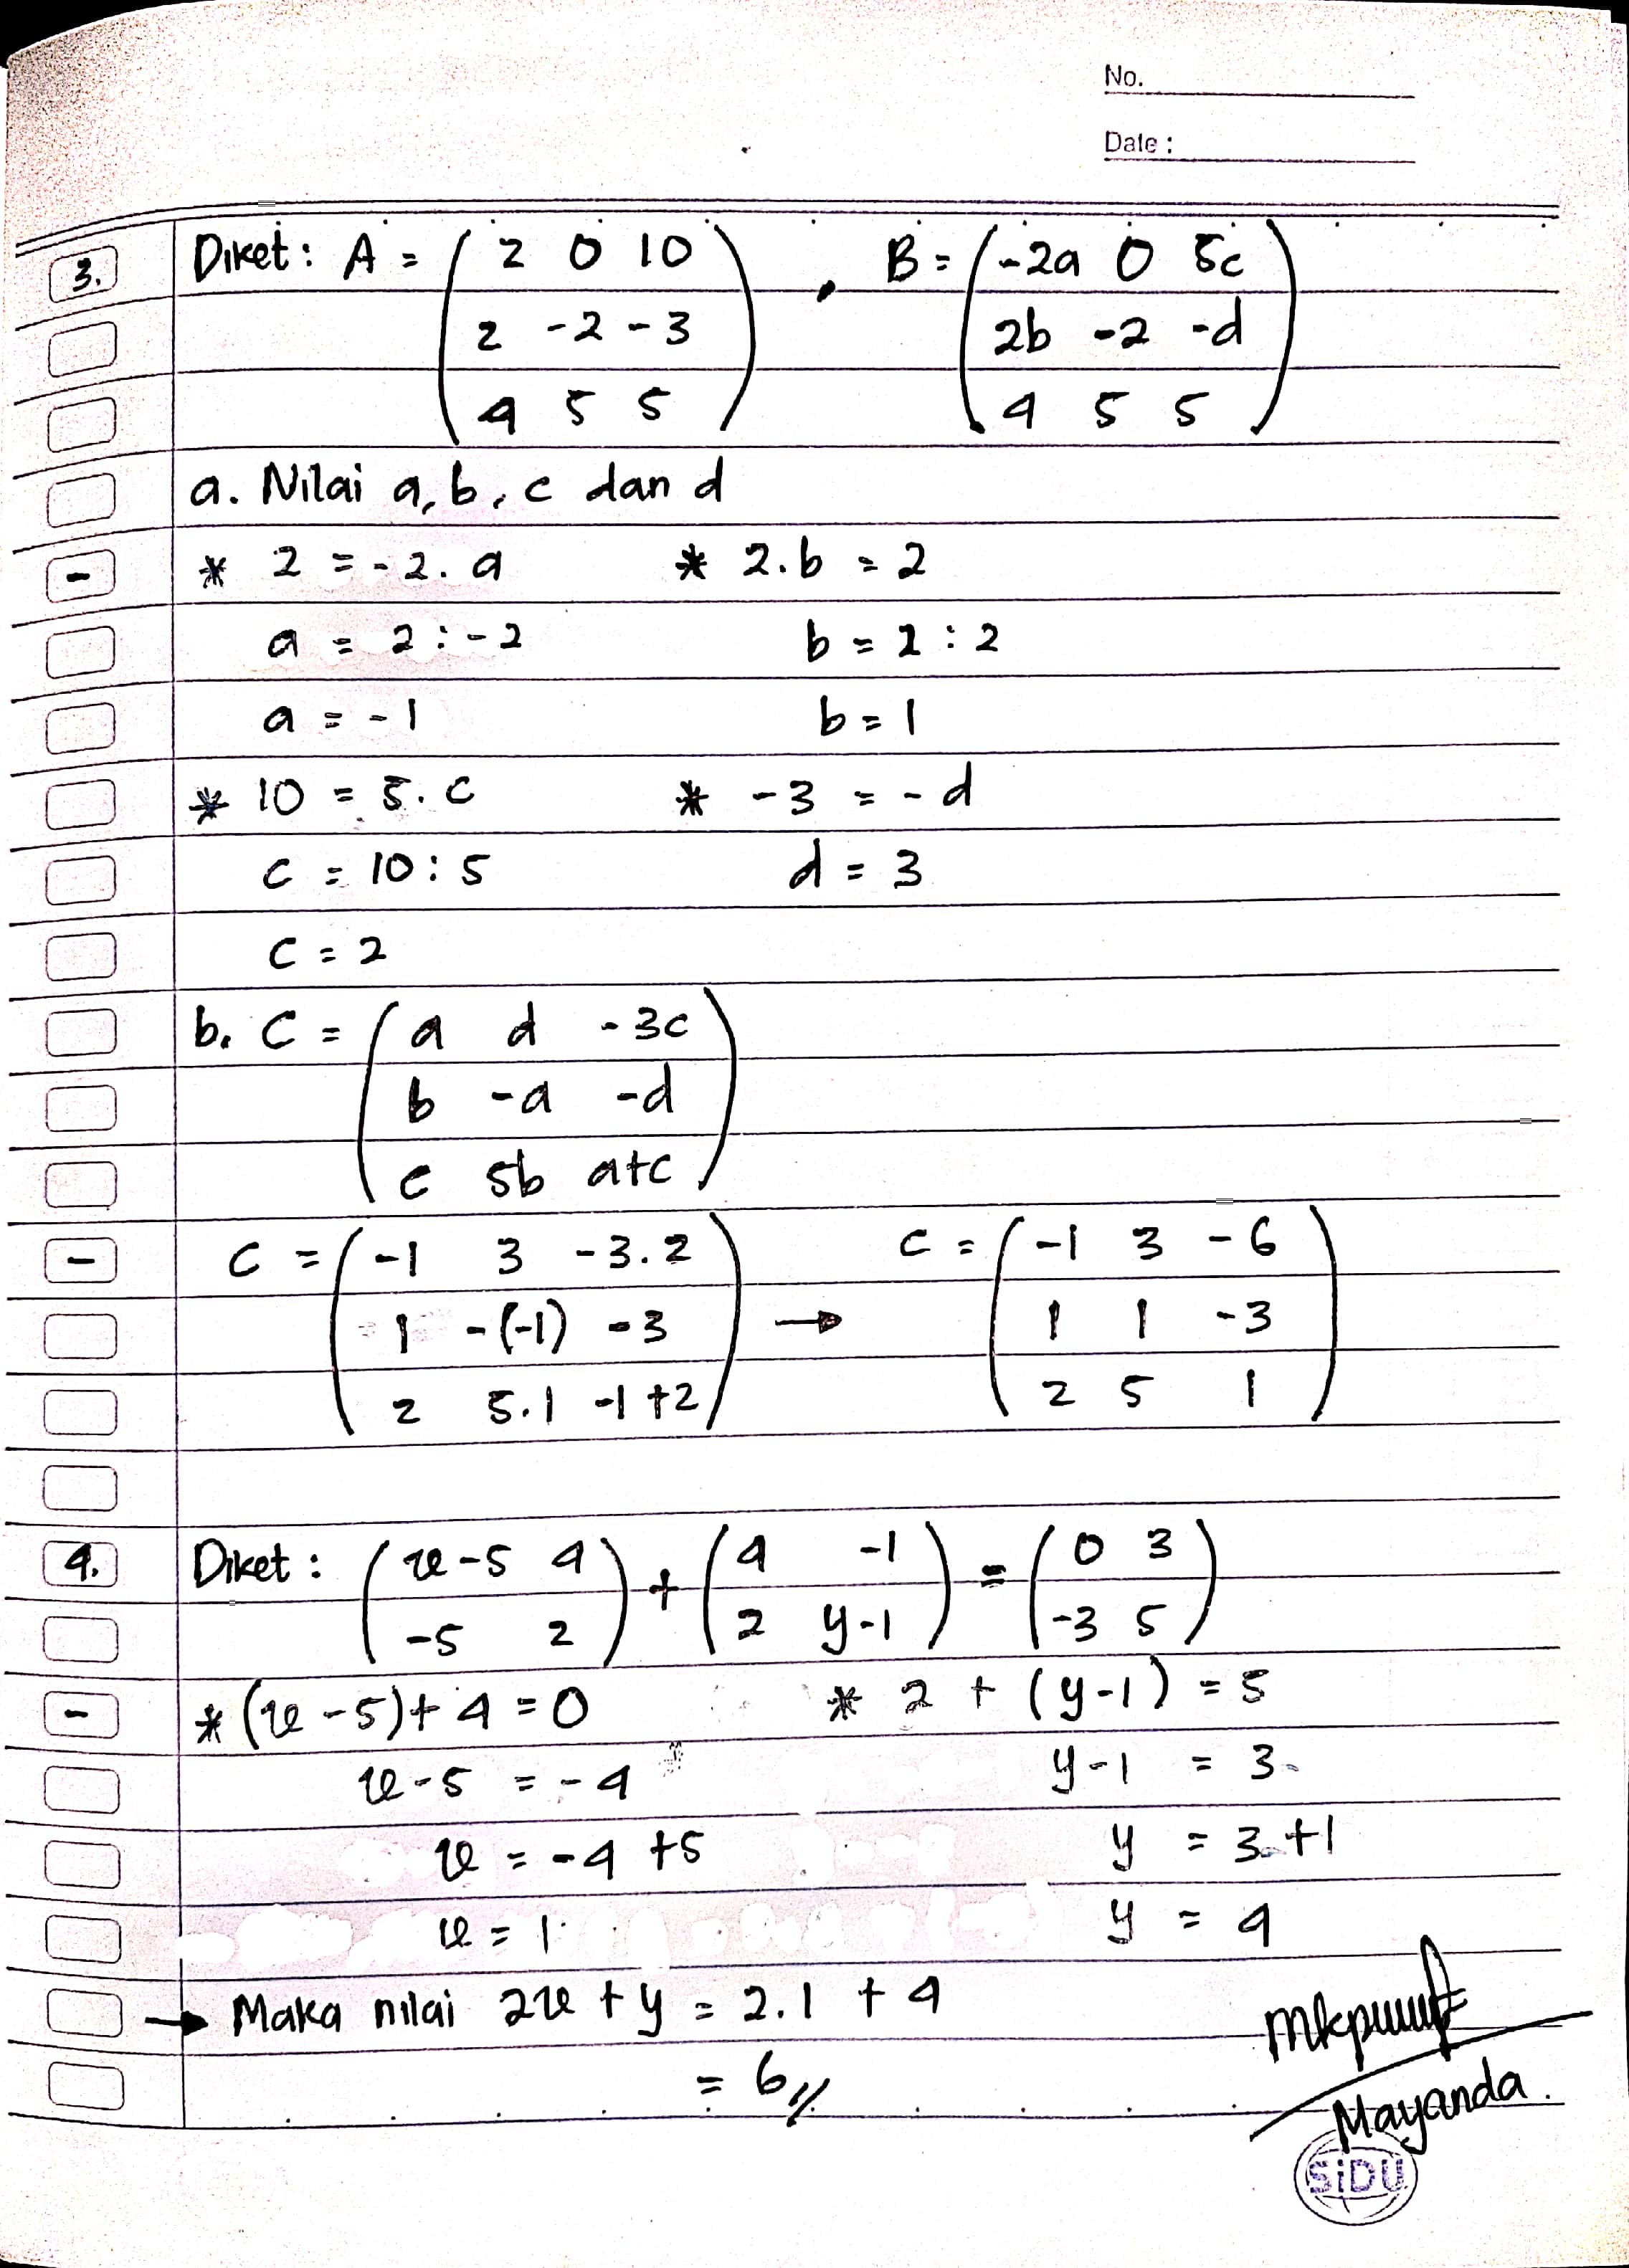 No.
Date :
3. Diket : A = ( 2 0 10 ) , B = ( -2a 0 5c )
( 2 -2 -3 ) ( 2b -2 -d )
( 4 5 5 ) ( 4 5 5 )
a. Nilai a, b, c dan d
- * 2 = -2 . a * 2 . b = 2
a = 2 : -2 b = 2 : 2
a = -1 b = 1
* 10 = 5 . c * -3 = -d
c = 10 : 5 d = 3
c = 2
b. C = ( a d -3c )
( b -a -d )
( c 5b a+c )
- C = ( -1 3 -3.2 ) → C = ( -1 3 -6 )
( 1 -(-1) -3 ) ( 1 1 -3 )
( 2 5.1 -1+2 ) ( 2 5 1 )
4. Diket : ( x-5 4 ) + ( 4 -1 ) = ( 0 3 )
( -5 2 ) ( 2 y-1 ) ( -3 5 )
- * (x-5) + 4 = 0 * 2 + (y-1) = 5
x-5 = -4 y-1 = 3
x = -4 +5 y = 3 +1
x = 1 y = 4
→ Maka nilai 2x + y = 2.1 + 4
= 6 //
Mayanda.
SiDU